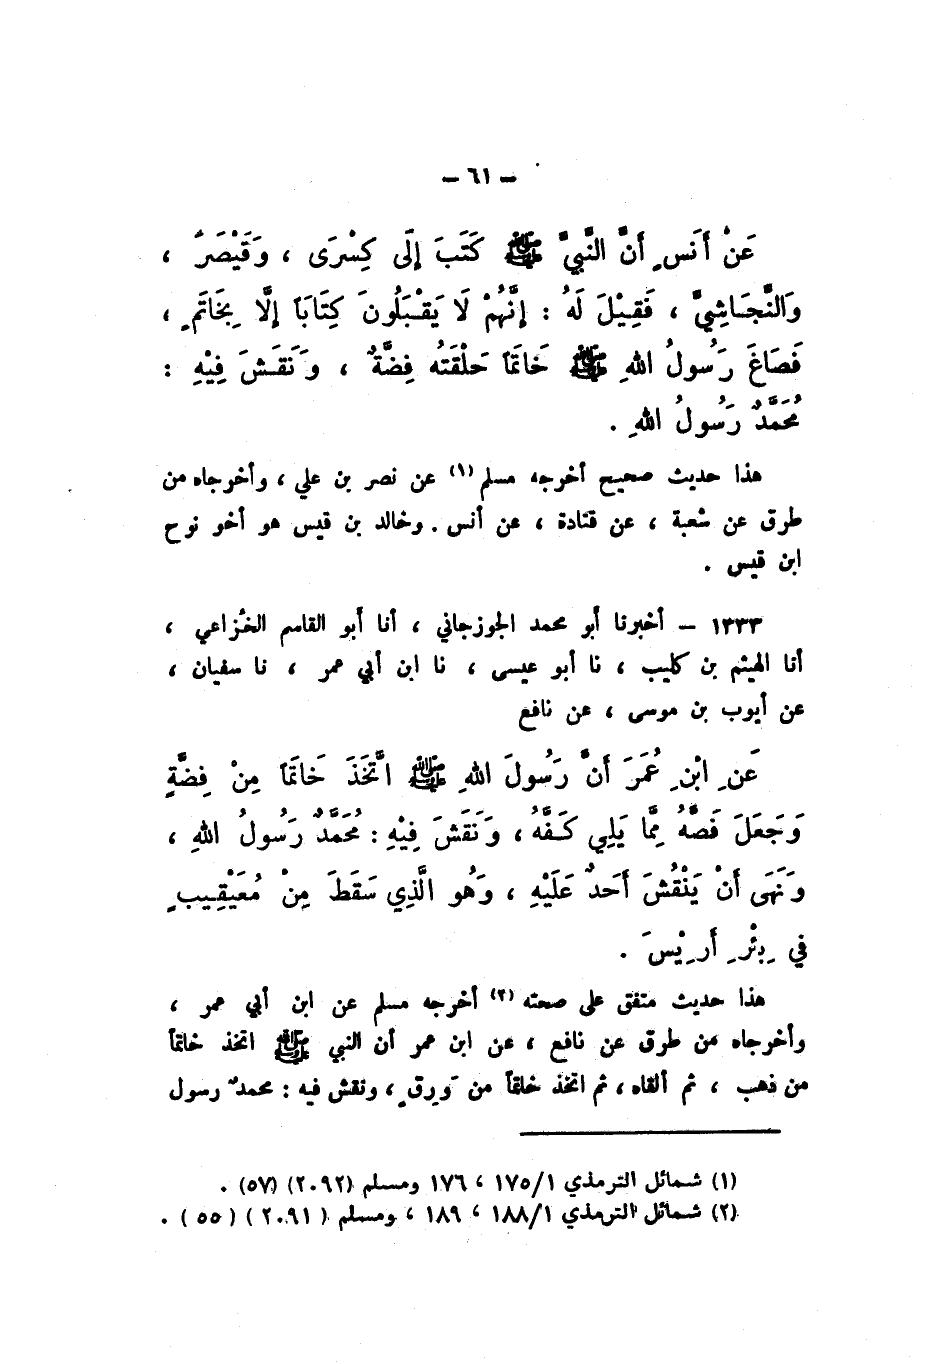 – ٦١ –
عَنْ أَنَسٍ أَنَّ النَّبِيَّ ﷺ كَتَبَ إِلَى كِسْرَى ، وَقَيْصَرَ ،
وَالنَّجَاشِيِّ ، فَقِيْلَ لَهُ : إِنَّهُمْ لَا يَقْبَلُونَ كِتَابَاً إِلَّا بِخَاتَمٍ ،
فَصَاغَ رَسُولُ اللهِ ﷺ خَاتَمَاً حَلْقَتُه فِضَّةٌ ، وَنَقَشَ فِيْهِ :
مُحَمَّدٌ رَسُولُ اللهِ .
هذا حديث صحيح أخرجه مسلم (١) عن نصر بن علي ، وأخرجاه من
طرق عن شعبة ، عن قتادة ، عن أنس . وخالد بن قيس هو أخو نوح
ابن قيس .
١٣٣٣ – أخبرنا أبو محمد الجوزجاني ، أنا أبو القاسم الخُزاعي ،
أنا الهيثم بن كليب ، نا أبو عيسى ، نا ابن أبي عمر ، نا سفيان ،
عن أيوب بن موسى ، عن نافع
عَنِ ابْنِ عُمَرَ أَنَّ رَسُولَ اللهِ ﷺ اتَّخَذَ خَاتَمَاً مِنْ فِضَّةٍ
وَجَعَلَ فَصَّهُ مِمَّا يَلِي كَفَّهُ ، وَنَقَشَ فِيْهِ : مُحَمَّدٌ رَسُولُ اللهِ ،
وَنَهَى أَنْ يَنْقُشَ أَحَدٌ عَلَيْهِ ، وَهُو الَّذِي سَقَطَ مِنْ مُعَيْقِيبٍ
في بِئْرِ أَرِيْسَ .
هذا حديث متفق على صحته (٢) أخرجه مسلم عن ابن أبي عمر ،
وأخرجاه من طرق عن نافع ، عن ابن عمر أن النبي ﷺ اتخذ خاتماً
من ذهب ، ثم ألقاه ، ثم اتخذ خاتماً من وَرِقٍ ، ونقش فيه : محمدٌ رسول
(١) شمائل الترمذي ١/١٧٥ ، ١٧٦ ومسلم (٢٠٩٢) (٥٧) .
(٢) شمائل الترمذي ١/١٨٨ ، ١٨٩ ، ومسلم (٢٠٩١) (٥٥) .